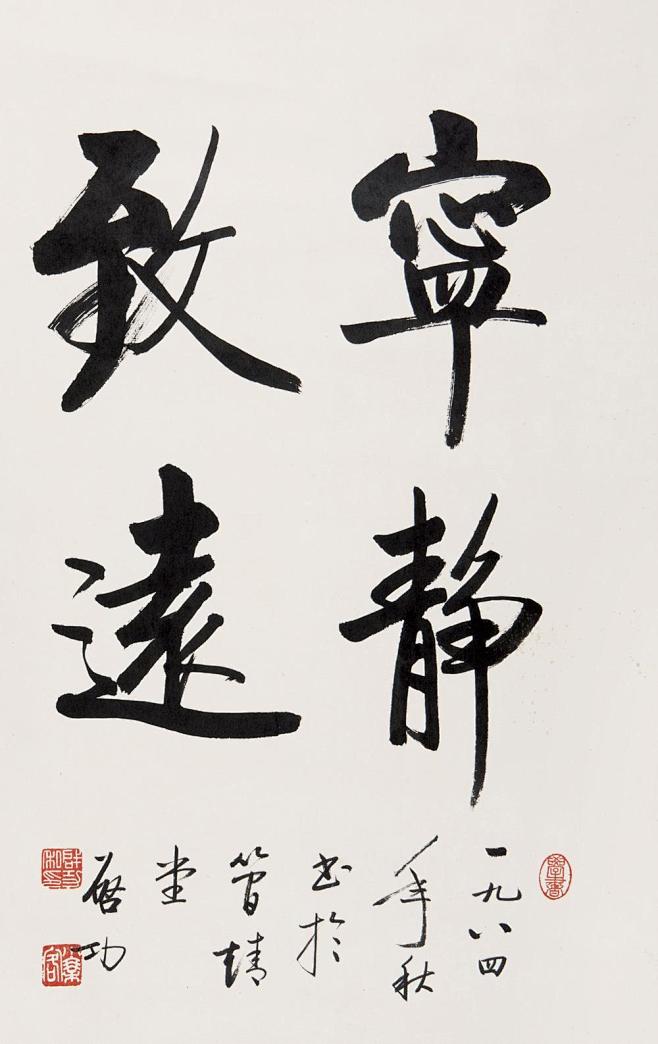 寧靜
致遠
一九八四
年秋
書於
簡靖
堂
启功